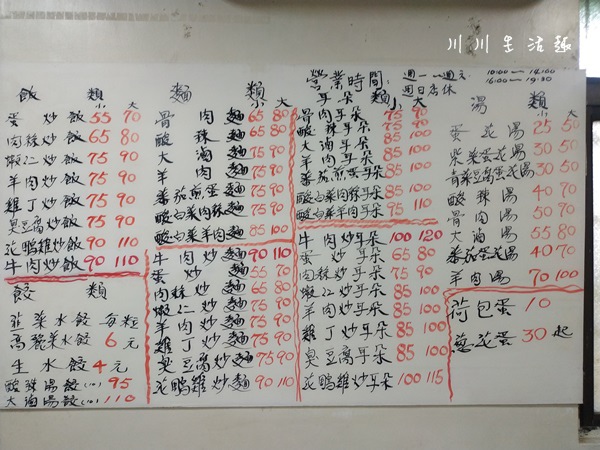 川川生活趣
營業時間:週一~週六 10:00~14:00
16:00~19:30
週日店休
飯類
小 大
蛋炒飯 55 70
肉絲炒飯 65 80
蝦仁炒飯 75 90
羊肉炒飯 75 90
雞丁炒飯 75 90
臭豆腐炒飯 75 90
花鴨雞炒飯 90 110
牛肉炒飯 90 110
餃類
韭菜水餃 每粒
高麗菜水餃 6元
生水餃 4元
酸辣湯餃(10) 95
大滷湯餃(10) 110
麵類
小 大
骨肉麵 65 80
酸辣麵 65 80
大滷麵 75 90
羊肉麵 75 90
番茄煎蛋麵 75 90
酸白菜肉絲麵 75 90
酸白菜羊肉麵 85 100
牛肉炒麵 90 110
蛋炒麵 55 70
肉絲炒麵 65 80
蝦仁炒麵 75 90
羊肉炒麵 75 90
雞丁炒麵 75 90
臭豆腐炒麵 75 90
花鴨雞炒麵 90 110
耳朵類
小 大
骨肉耳朵 75 90
酸辣耳朵 75 90
大滷耳朵 85 100
羊肉耳朵 85 100
番茄煎蛋耳朵 85 100
酸白菜肉絲耳朵 85 100
酸白菜羊肉耳朵 95 110
牛肉炒耳朵 100 120
蛋炒耳朵 65 80
肉絲炒耳朵 75 90
蝦仁炒耳朵 85 100
羊肉炒耳朵 85 100
雞丁炒耳朵 85 100
臭豆腐炒耳朵 85 100
花鴨雞炒耳朵 100 115
湯類
小 大
蛋花湯 25 50
紫菜蛋花湯 30 50
青菜豆腐蛋花湯 30 50
酸辣湯 40 70
骨肉湯 50 90
大滷湯 55 80
番茄蛋花湯 40 70
羊肉湯 70 100
荷包蛋 10
蔥花蛋 30起